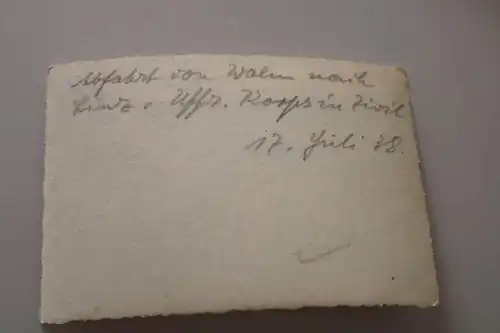 Abfahrt von Waln nach
Linz. Uffz. Koops in Zivil
17. Juli 38.